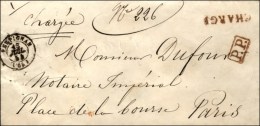 Chargée
N° 226
CHARGÉ
P.P.
Monsieur Dufour
Notaire Impérial
Place de la bourse Paris